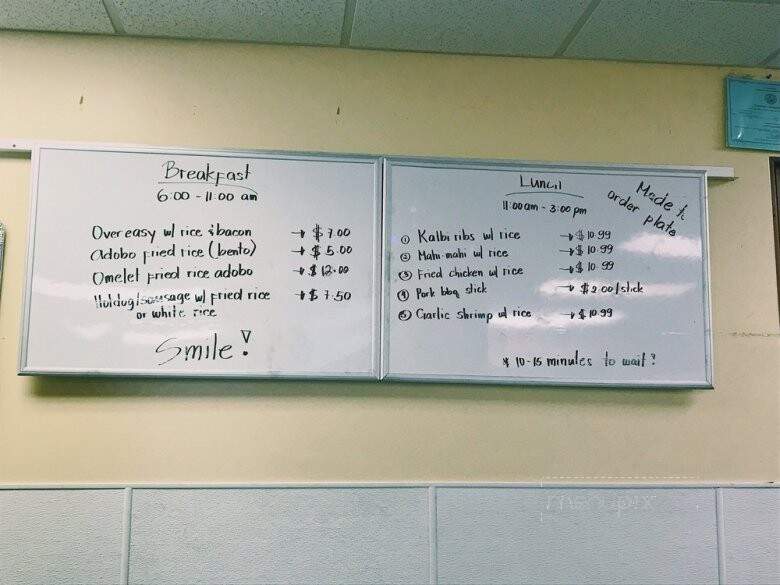 Breakfast
6:00 - 11:00 am
Over easy w/ rice & bacon → $ 7.00
Adobo fried rice (bento) → $ 5.00
Omelet fried rice adobo → $ 12.00
Hotdog/sausage w/ fried rice → $ 7.50
or white rice
Smile!
Lunch
11:00 am - 3:00 pm
Made to
order plate
① Kalbi ribs w/ rice → $ 10.99
② Mahi-mahi w/ rice → $ 10.99
③ Fried chicken w/ rice → $ 10.99
④ Pork bbq stick → $ 2.00/stick
⑤ Garlic shrimp w/ rice → $ 10.99
* 10-15 minutes to wait!